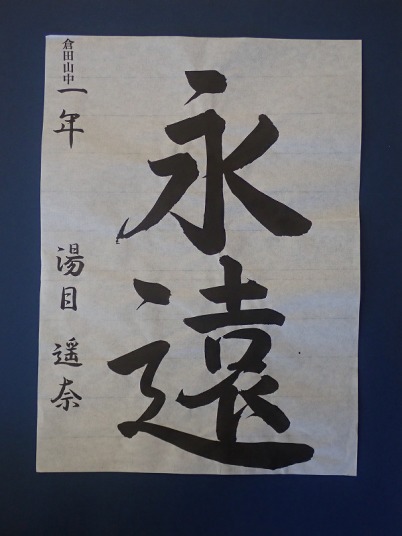 永遠
倉田山中一年 湯目遥奈